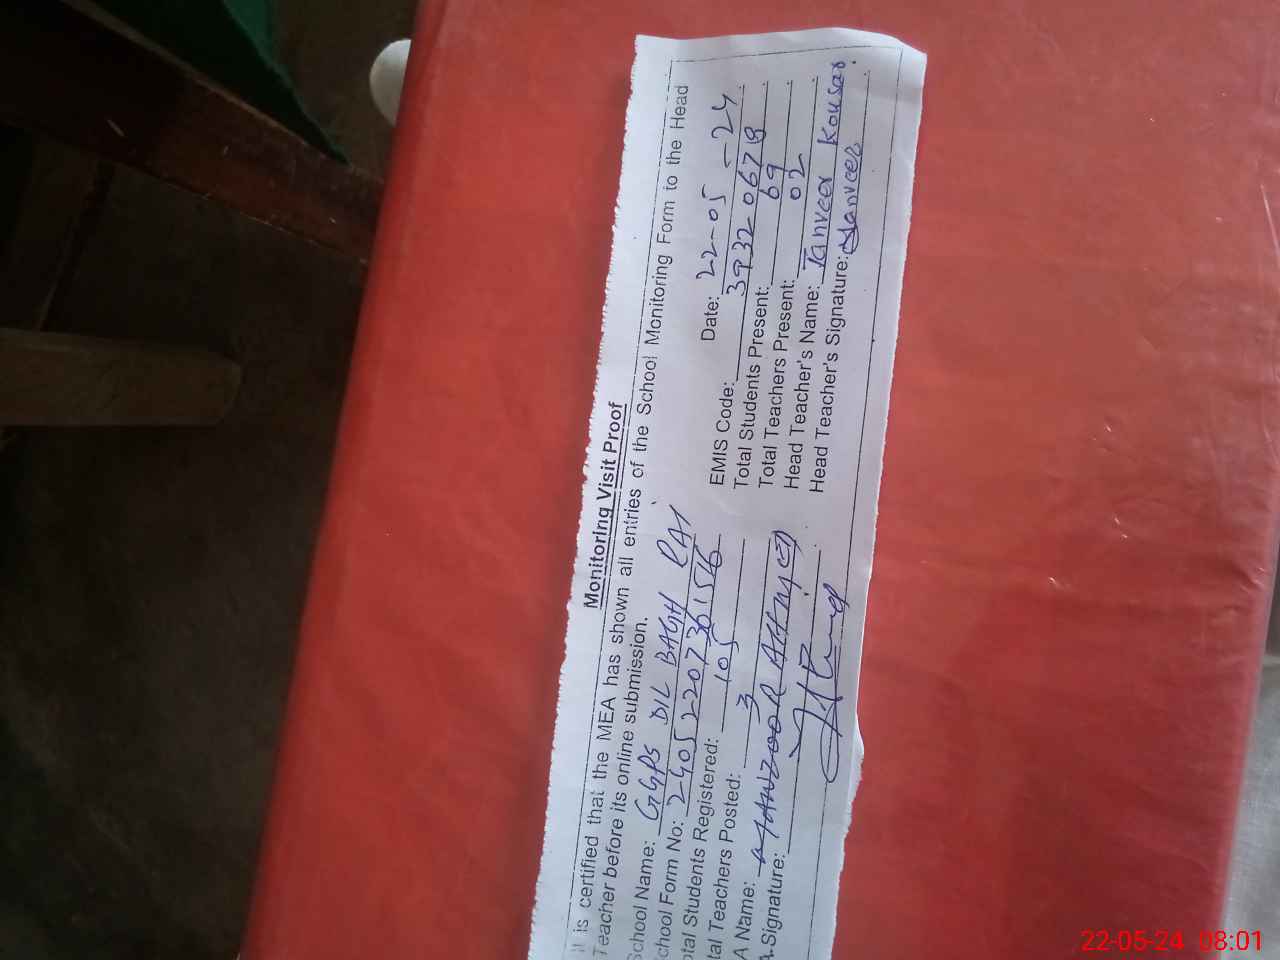 Monitoring Visit Proof
It is certified that the MEA has shown all entries of the School Monitoring Form to the Head
Teacher before its online submission.
School Name: GGPS DIL BAGH RAI
Date: 22-05-24
School Form No: 24052207301516
EMIS Code: 39320678
otal Students Registered: 105
Total Students Present: 69
tal Teachers Posted: 3
Total Teachers Present: 02
A Name: MANZOOR AHMED
Head Teacher's Name: Tanveer Kousar
A Signature:
Head Teacher's Signature: Tanveer
22-05-24 08:01